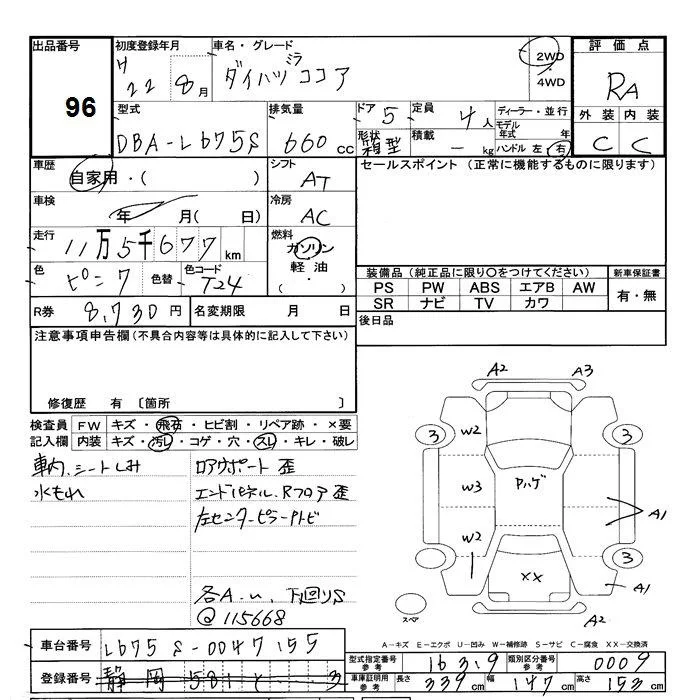 出品番号
96
初度登録年月
H 22 8月
車名・グレード
ダイハツ ミラ ココア
2WD
4WD
評価点
RA
外装 内装
C C
型式
DBA-L675S
排気量
660 cc
ドア 5
形状 箱型
定員 4人
積載 - kg
ディーラー・並行
モデル年式 年
ハンドル 左・右
車歴
自家用・( )
シフト
AT
セールスポイント(正常に機能するものに限ります)
車検
年 月( 日)
冷房
AC
走行
11万5千677km
燃料
ガソリン
軽油・
( )
色
ピンク
色替
色コード
T24
装備品(純正品に限り〇をつけてください)
新車保証書
PS PW ABS エアB AW
SR ナビ TV カワ
有・無
R券 8,730円
名変期限 月 日
後日品
注意事項申告欄(不具合内容等は具体的に記入して下さい)
修復歴 有〔箇所
検査員記入欄
FW キズ・飛石・ヒビ割・リペア跡・×要
内装 キズ・汚レ・コゲ・穴・スレ・キレ・破レ
車内、シートしみ
水もれ
ロアサポート歪
エンドパネル、Rフロア歪
左センターピラートビ
各A.U、下回りS
@115668
A2 A3
3 W2 3
W3 Pハゲ
A1
W2
3
XX
A1
スペア
A2
A-キズ E-エクボ U-凹み W-補修跡 S-サビ C-腐食 XX-交換済
車台番号 L675S-0047155
登録番号 静岡 581 と 3
型式指定番号 参考 16319
類別区分番号 参考 0009
車庫証明用 参考 長さ 339cm 幅 147cm 高さ 153cm